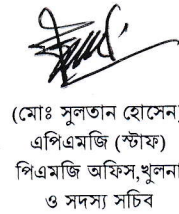 (মোঃ সুলতান হোসেন)
এপিএমজি (স্টাফ)
পিএমজি অফিস,খুলনা
ও সদস্য সচিব